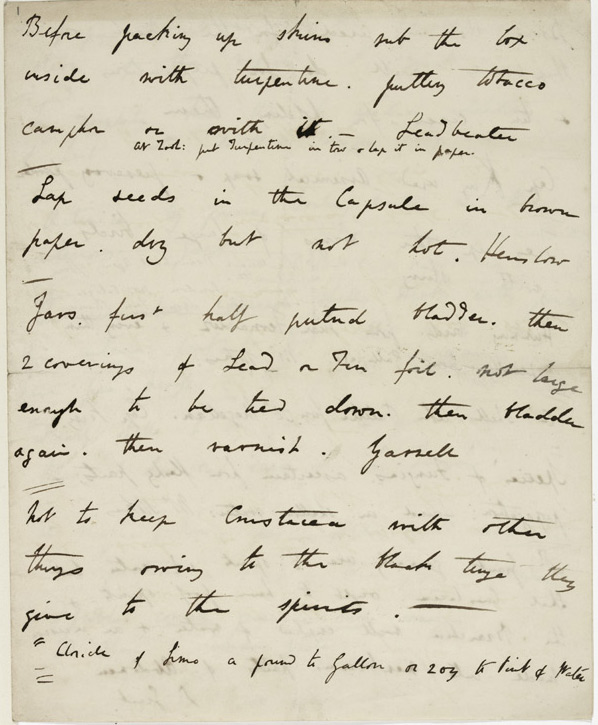 Before packing up skins rub the box
inside with turpentine. putting tobacco
camphor or with it. — Leadbeater
At Zool: put Turpentine in tow & lap it in paper.
Lap seeds in the Capsule in brown
paper. dry but not hot. Henslow
Jars. first half putrid bladder. then
2 coverings of Lead or Tin foil. not large
enough to be tied down. then bladder
again. then varnish. Yarrell
Not to keep Crustacea with other
things owing to the black tinge they
give to the spirits. —
" Cloride of Lime a pound to Gallon or 2oz to Pint of Water